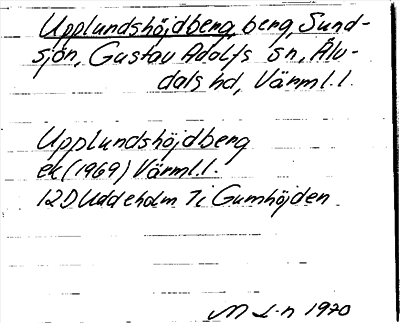 Upplundshöjdberg, berg, Sund-
sjön, Gustav Adolfs sn, Älv-
dals hd, Värml.l.
Upplundshöjdberg
ek (1969) Värml.l.
12D Uddeholm 7i Gumhöjden
M L-n 1970